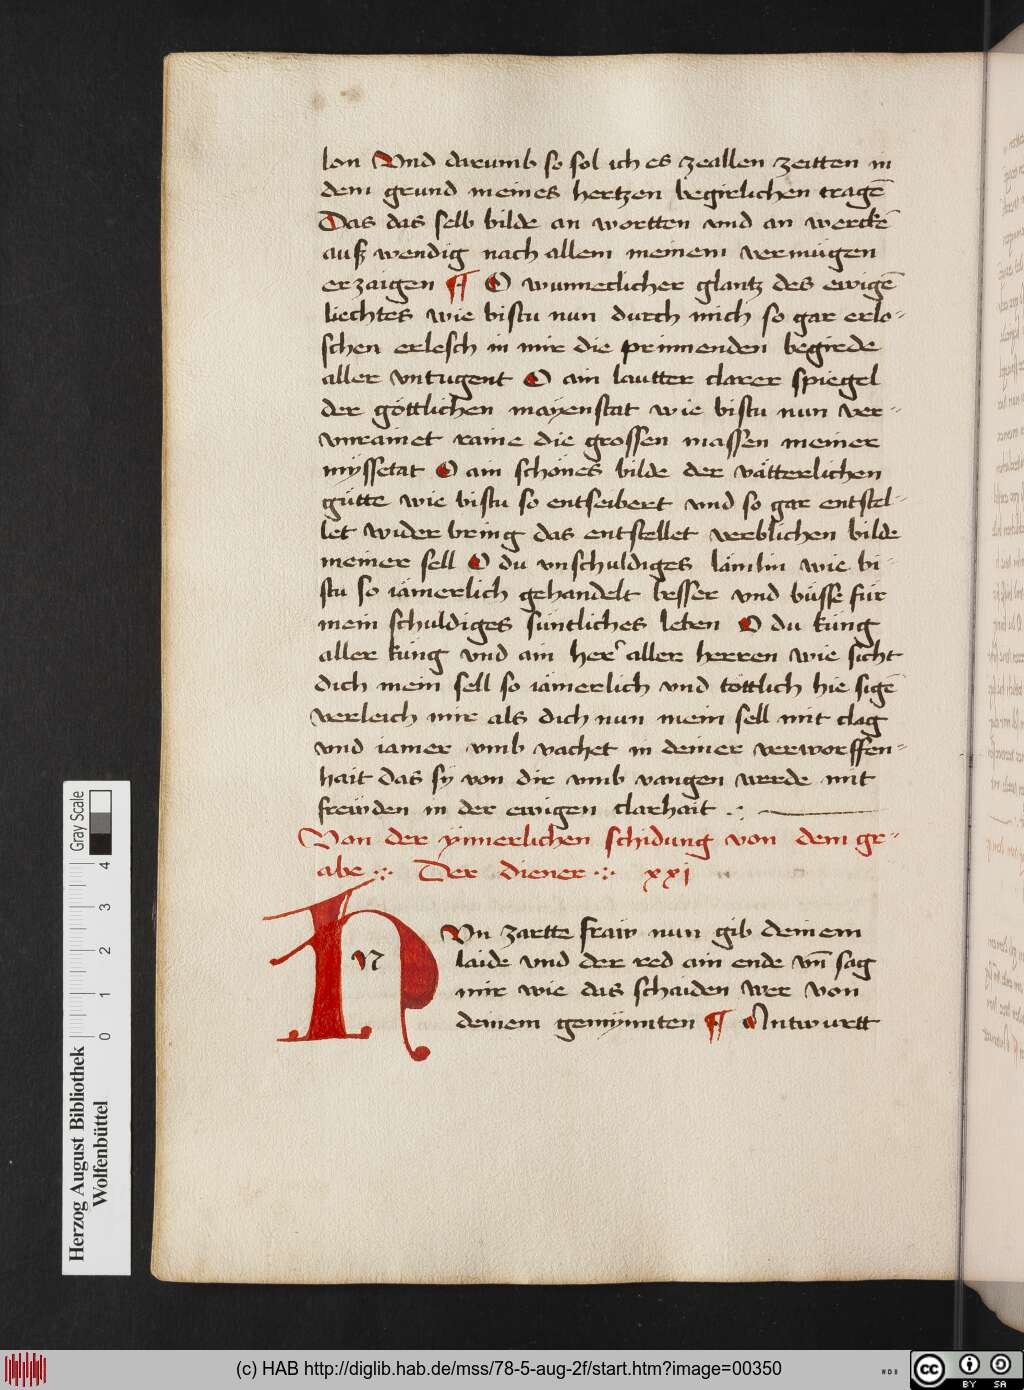 lon Vnd darumb so sol ich es zeallen zeitten in
dem grund meines hertzen begirlichen tragē
Das das selb bilde an wortten vnd an werckē
auß wendig nach allem meinem vermügen
erzaigen ¶ O wunneclicher glantz des ewigē
liechtes wie bistu nun durch mich so gar erlo-
schen erlesch in mir die prinnenden begirde
aller vntugent O ain lautter clarer spiegel
der göttlichen mayenstat wie bistu nun ver-
vnrainet raine die grossen massen meiner
myssetat O ain schönes bilde der vätterlichen
gütte wie bistu so entseibert vnd so gar entstel-
let wider bring das entstellet verblichen bilde
meiner sell O du vnschuldiges lämlin wie bi-
stu so iämerlich gehandelt besser vnd büsse für
mein schuldiges süntliches leben O du küng
aller küng vnd ain her aller herren wie sicht
dich mein sell so iämerlich vnd töttlich hie sigē
verleich mir als dich nun mein sell mit clag
vnd iamer vmb vachet in deiner verworffen-
hait das sy von dir vmb vangen werde mit
frewden in der ewigen clarhait
Von der ynnerlichen schidung von dem gr-
abe Der diener xxj
NVn zartte fraw nun gib deinem
laide vnd der red ain ende vn̄ sag
mir wie das schaiden wer von
deinem gemynnten ¶ Antwurtt
Herzog August Bibliothek
Wolfenbüttel
Gray Scale
0 1 2 3 4
(c) HAB http://diglib.hab.de/mss/78-5-aug-2f/start.htm?image=00350
WDB
cc BY SA